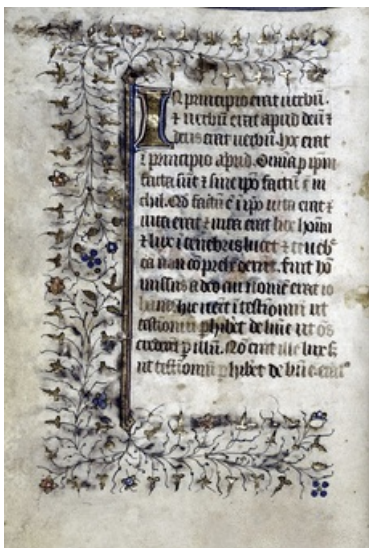 IN principio erat uerbū.
⁊ uerbū erat apud deū ⁊
deus erat uerbū. hoc erat
ī principio apud. Omīa p ipm
facta sūt ⁊ sine ipō factū ē ni
chil. Qd factū ē ī ipō uita erat ⁊
uita erat ⁊ uita erat lux hoīm
⁊ lux ī tenebris lucet ⁊ teneb
ea nan cōprehēderūt. Fuit hō
missus a deo cui nomē erat io
hanes hic uēit ī testīoniū ut
testīoniū phibet de lūīe ut oēs
crederēt p illū. Nō erat ille lux s̄
ut testīoniū phibet de lūīe erat